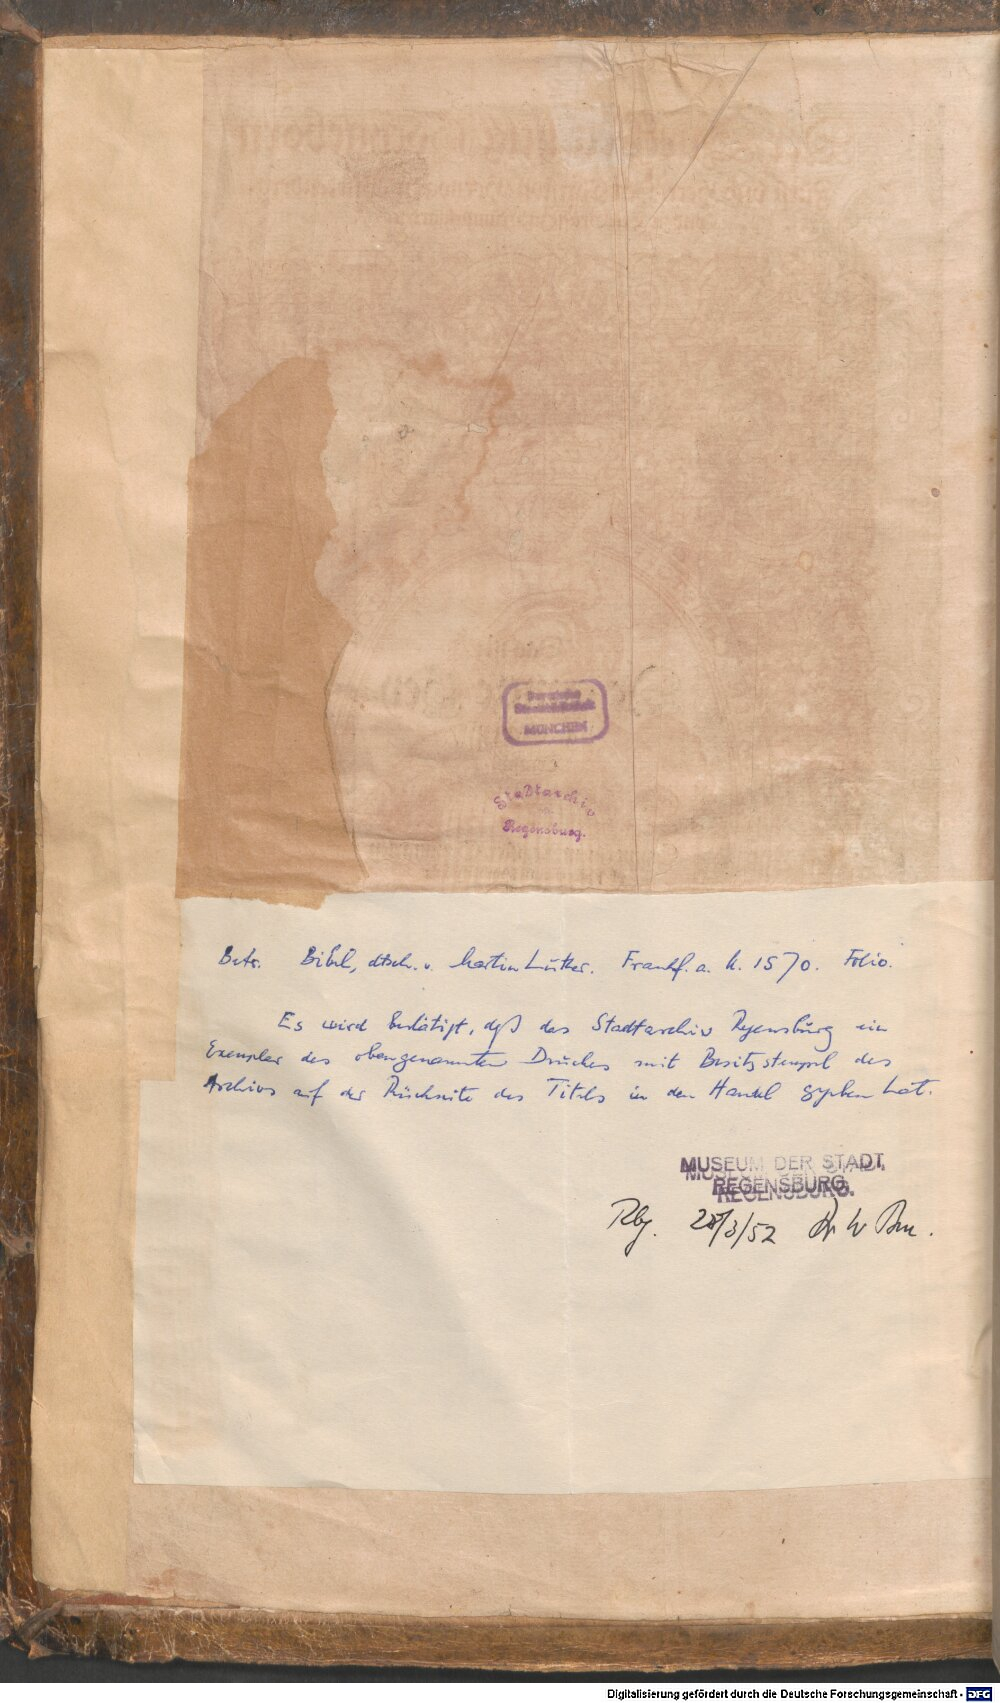 Bayerische
Staatsbibliothek
MÜNCHEN
Stadtarchiv
Regensburg.
Betr. Bibel, dtsch. v. Martin Luther. Frankf. a. M. 1570. Folio.
Es wird bestätigt, daß das Stadtarchiv Regensburg ein
Exemplar des obengenannten Druckes mit Besitzstempel des
Archivs auf der Rückseite des Titels in den Handel gegeben hat.
MUSEUM DER STADT
REGENSBURG.
Rbg. 28/3/52 Dr W
Digitalisierung gefördert durch die Deutsche Forschungsgemeinschaft - DFG